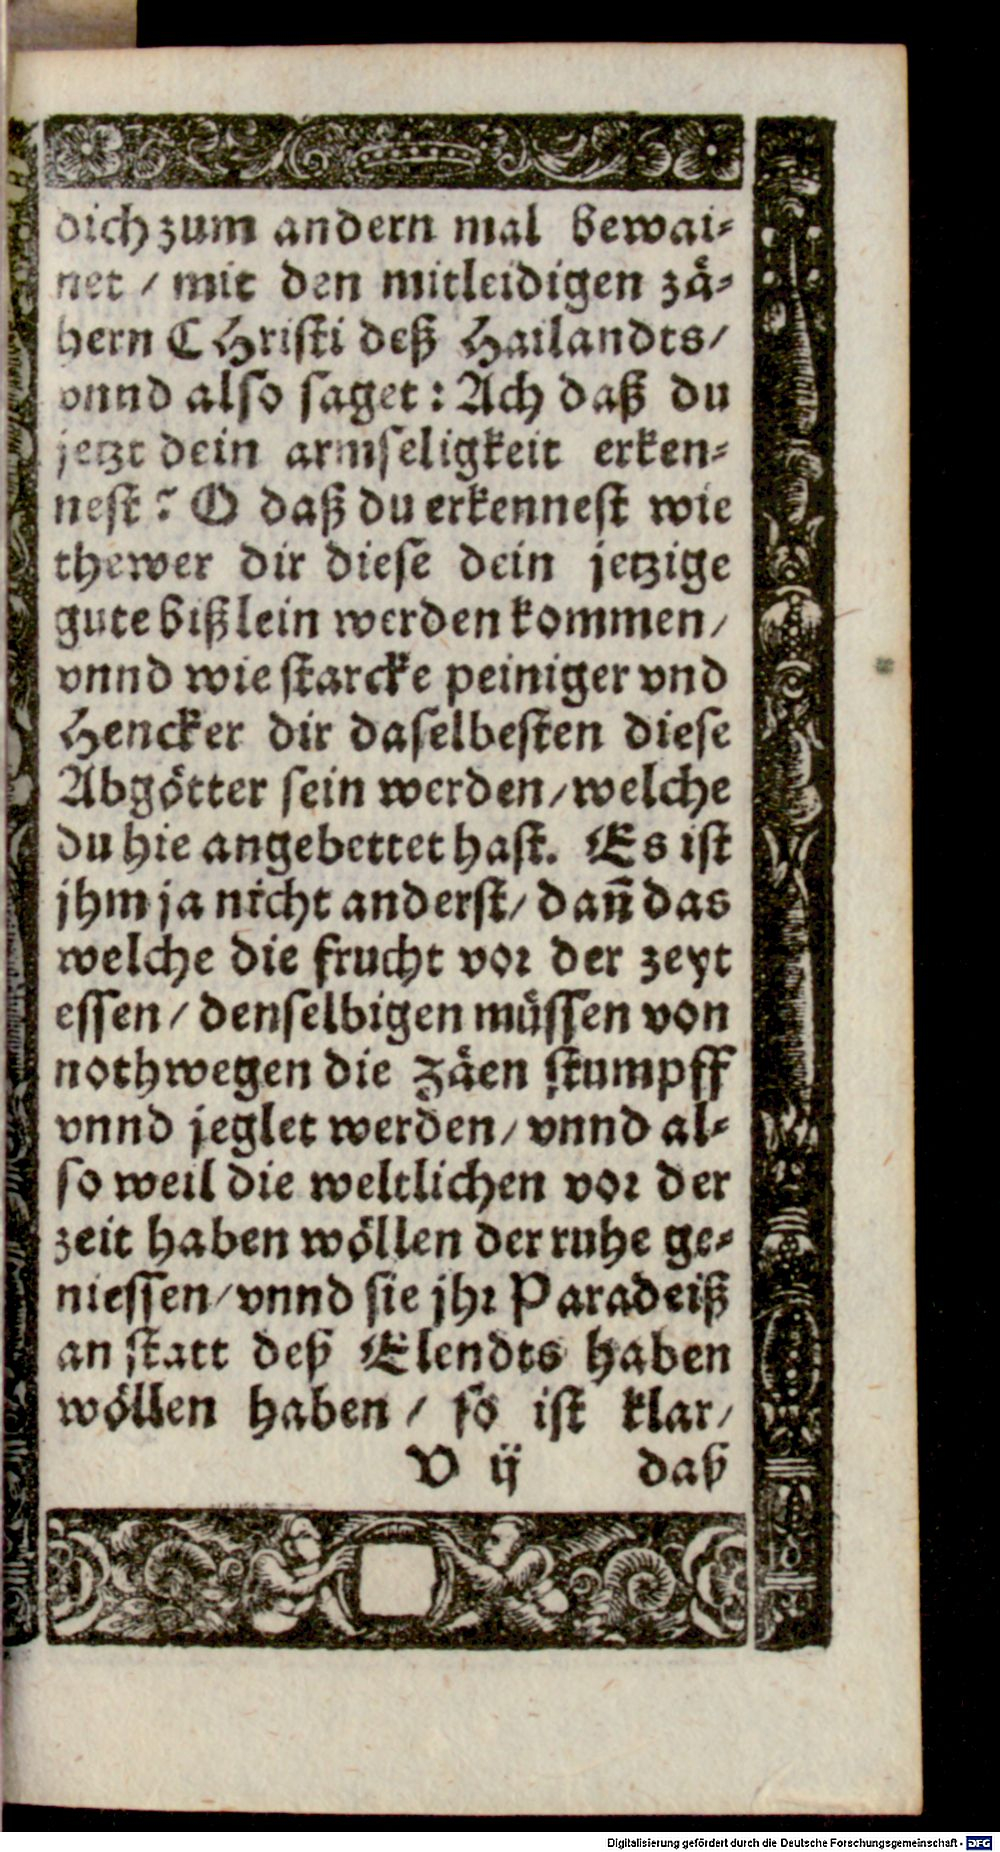 dich zum andern mal bewai⸗
net / mit den mitleidigen zaͤ⸗
hern CHristi deß Hailandts/
vnnd also saget: Ach daß du
jetzt dein armseligkeit erken⸗
nest? O daß du erkennest wie
thewer dir diese dein jetzige
gute bißlein werden kommen/
vnnd wie starcke peiniger vnd
Hencker dir daselbesten diese
Abgoͤtter sein werden/welche
du hie angebettet hast. Es ist
jhm ja nicht anderst/ dan̄ das
welche die frucht vor der zeyt
essen/ denselbigen muͤssen von
nothwegen die Zaͤen stumpff
vnnd jeglet werden/ vnnd al⸗
so weil die weltlichen vor der
zeit haben woͤllen der ruhe ge⸗
niessen/vnnd sie jhr Paradeiß
an statt deß Elendts haben
woͤllen haben / so ist klar/
V ij daß
Digitalisierung gefördert durch die Deutsche Forschungsgemeinschaft - DFG